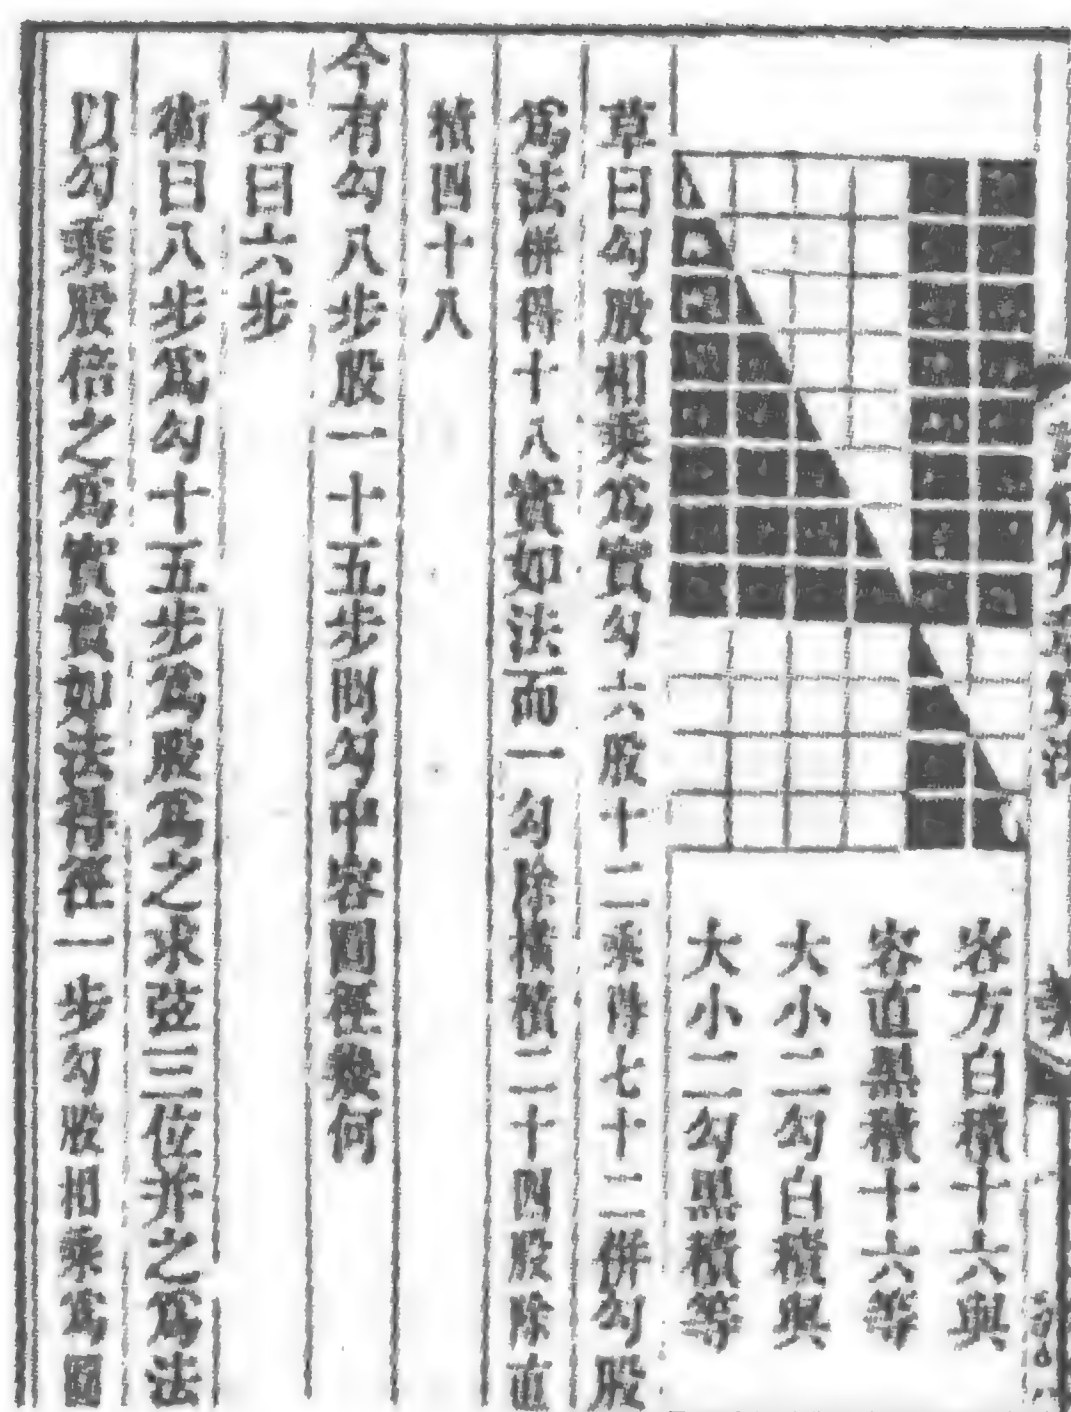 容方白積十六與
容直黑積十六等
大小二勾白積與
大小二勾黑積等
草曰勾股相乗爲實勾六股十二乗得七十二併勾股
爲法併得十八實如法而一勾除横積二十四股除直
積四十八
今有勾八步股一十五步問勾中容圓徑幾何
荅曰六步
術曰八步爲勾十五步爲股爲之求弦三位并之爲法
以勾乗股倍之爲實實如法得徑一步勾股相乗爲圖